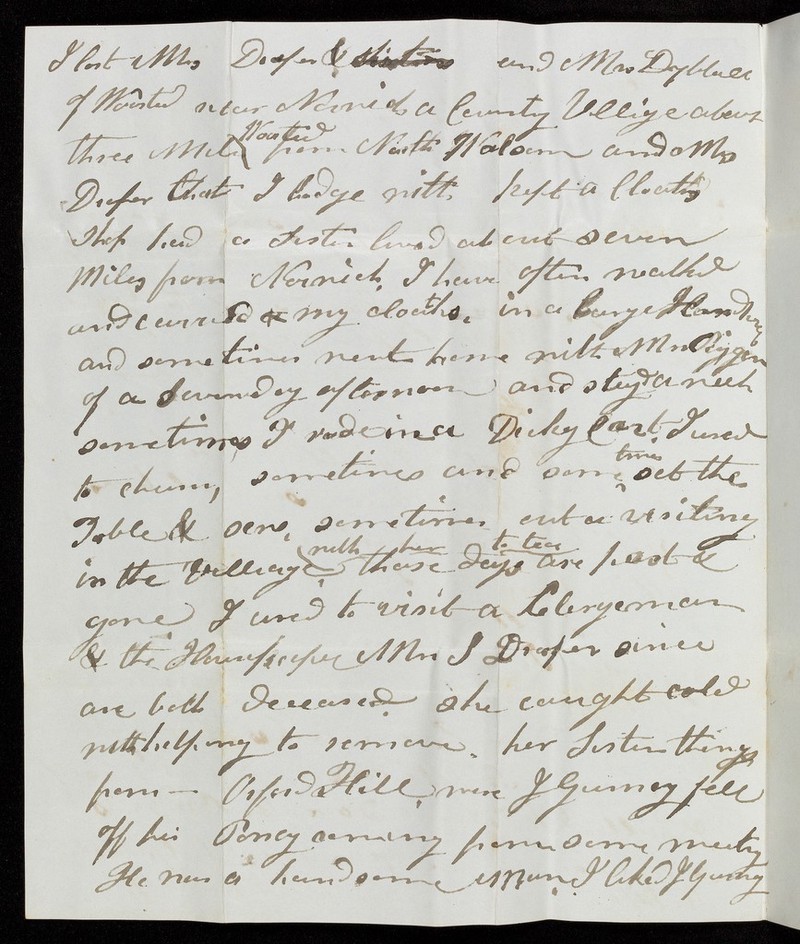 I lost Mrs Draper & sisters and Mrs Dyball
of Worsted near Norwich a County Villige about
three Miles Worsted from North Walsam and Mrs
Draper that I lodge with kept a Cloaths
Shop had a Sister lived about seven
Miles from Norwich, I have often walked
and carried my cloaths, in a large Hand
and sometimes went home with Mrs
of a Sevenday afternoon and stayd a week
sometimes I rode in a Dicky Cart, I used
to churn, sometimes and some times set the
Table & sew, sometimes out a visiting
in the Villiage with her to tea those days are past &
gone I used to visit a Clergeman
& the Housekeeper Mrs S Draper since
are both deceased, she caught cold
with helping to remove, her Sisters things
from Orford Hill, were J Gurney fell
off his Poney coming from some meeting
He was a handsome Man, I liked J Gurney